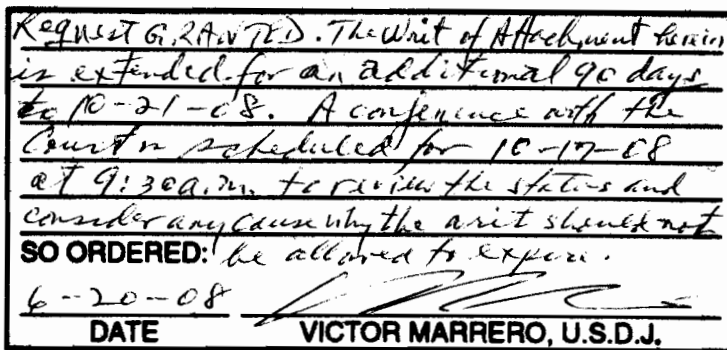 Request GRANTED. The Writ of Attachment herein
is extended for an additional 90 days
to 10-21-08. A conference with the
Court is scheduled for 10-17-08
at 9:30 a.m. to review the status and
consider any cause why the writ should not
SO ORDERED: be allowed to expire.
6-20-08
DATE VICTOR MARRERO, U.S.D.J.